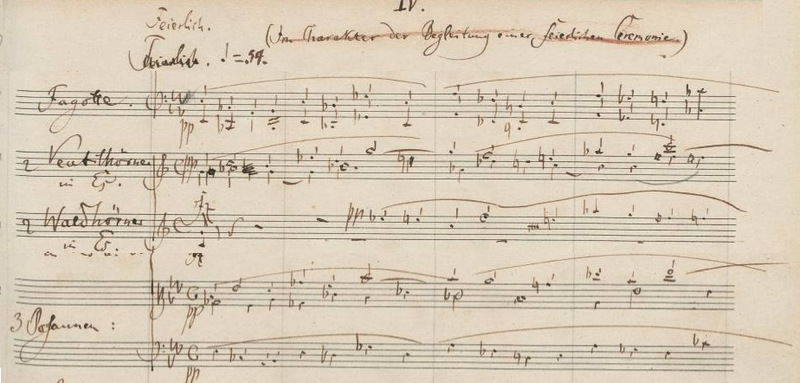 IV.
Feierlich.
(Im Charakter der Begleitung einer feierlichen Ceremonie.)
Feierlich. ♩=54.
Fagotte.
pp
2 Ventilhörner
in Es.
pp
2 Waldhörner
in Es.
pp
pp
3 Posaunen:
pp